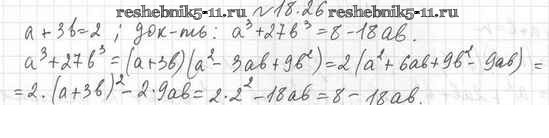 reshebnik5-11.ru №18.26 reshebnik5-11.ru
a+3b=2; док-ть: a³+27b³=8-18ab.
a³+27b³=(a+3b)(a²-3ab+9b²)=2(a²+6ab+9b²-9ab)=
=2·(a+3b)²-2·9ab=2·2²-18ab=8-18ab.